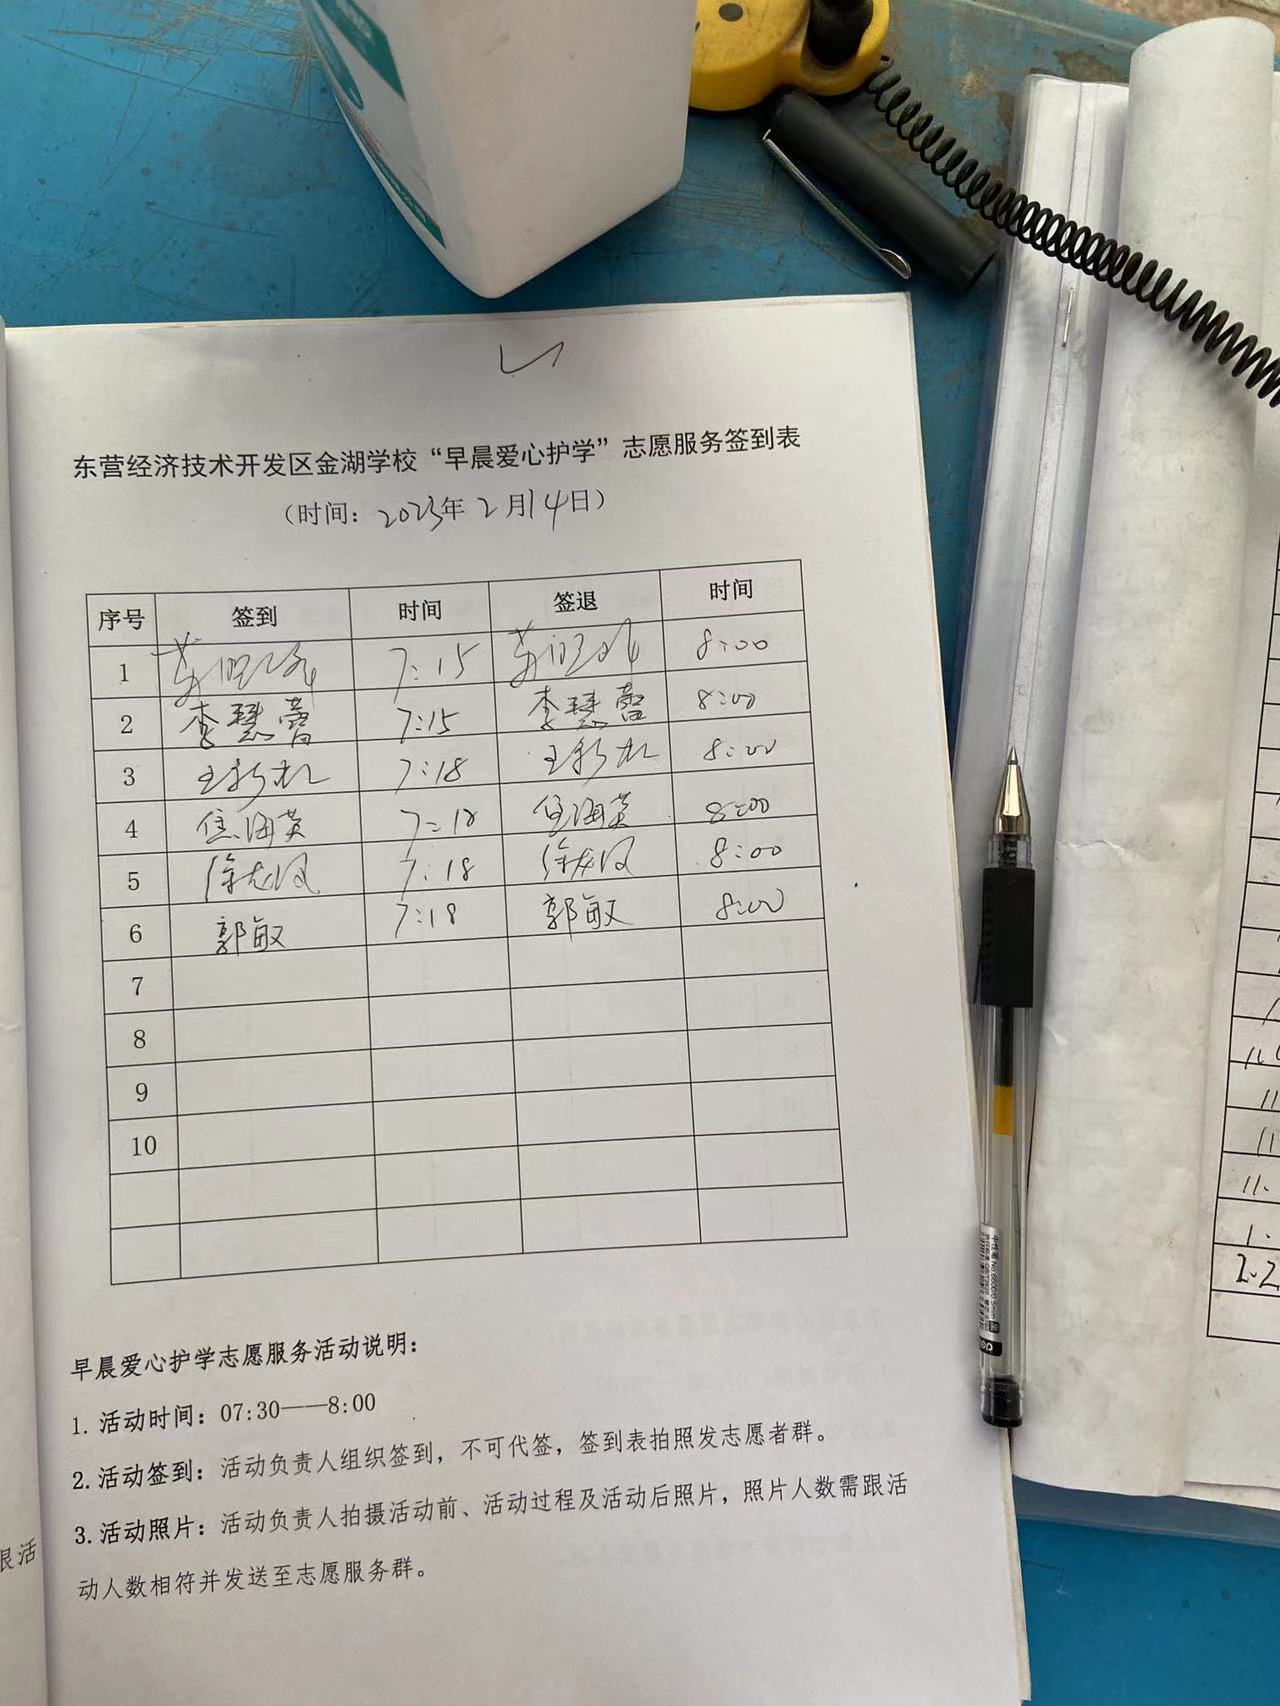 东营经济技术开发区金湖学校“早晨爱心护学”志愿服务签到表
（时间：2023年2月14日）
序号 签到 时间 签退 时间
1 7:15 8:00
2 李慧蕾 7:15 李慧蕾 8:00
3 7:18 8:00
4 焦海英 7:18 焦海英 8:00
5 7:18 8:00
6 郭敏 7:18 郭敏 8:00
7
8
9
10
早晨爱心护学志愿服务活动说明：
1. 活动时间：07:30——8:00
2. 活动签到：活动负责人组织签到，不可代签，签到表拍照发志愿者群。
3. 活动照片：活动负责人拍摄活动前、活动过程及活动后照片，照片人数需跟活
动人数相符并发送至志愿服务群。
跟活
11.
1.
2.2